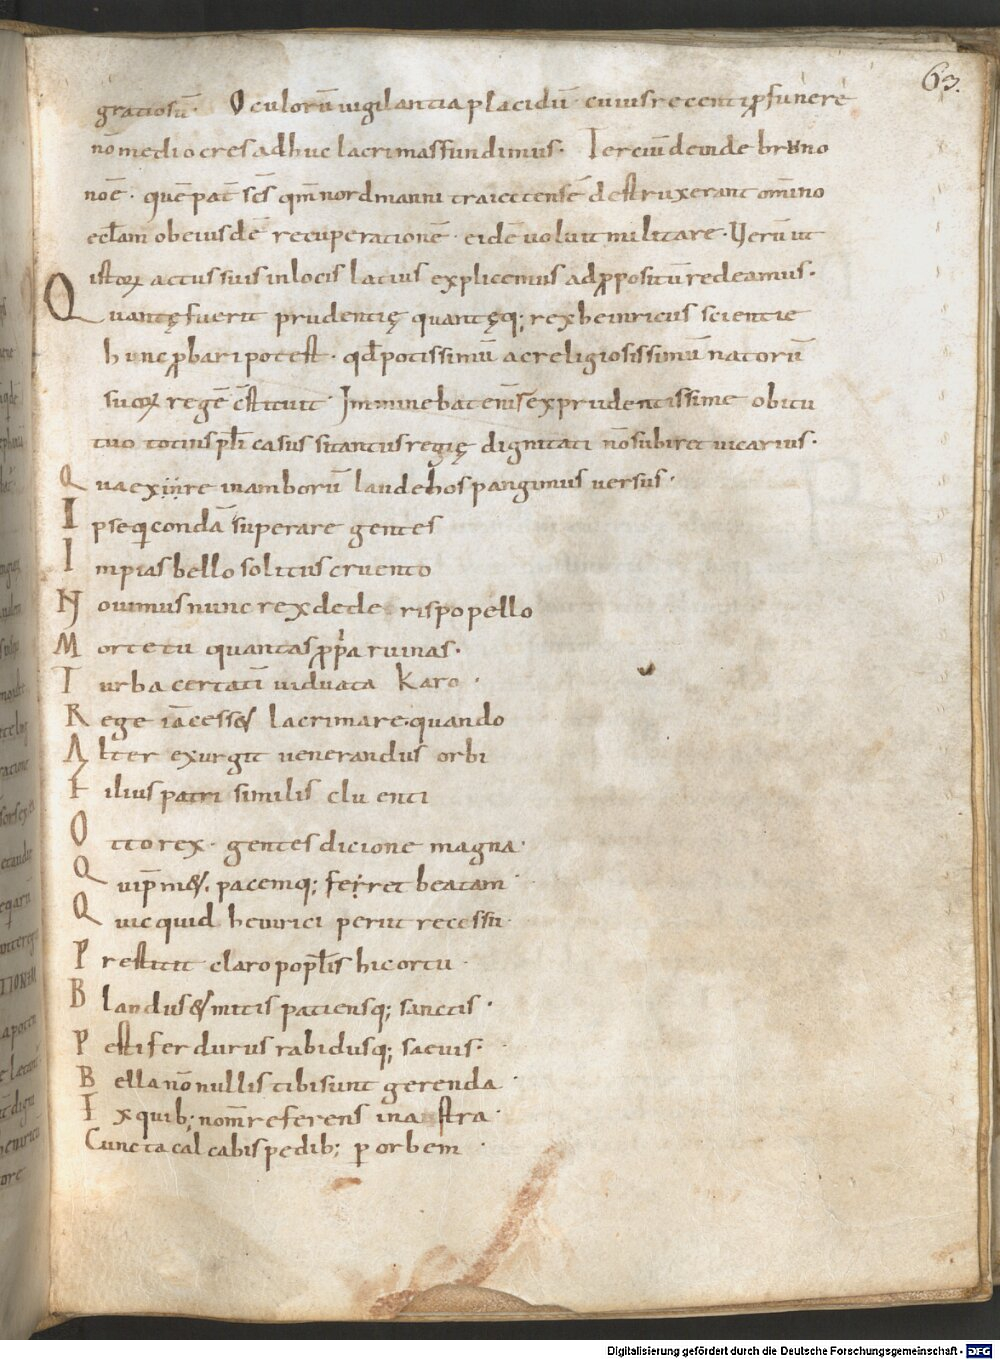 63.
gratiosū. Oculorū uigilantia placidū. cuius recenti ꝓ funere
nō mediocres adhuc lacrimas fundimus. Terciū deinde bruno
noē. quē pat̄ scs̄ qm̄ nordmanni traiectensē destruxerant omīno
ecłam ob eiusdē recuperationē. eidē uoluit militare. Uerū ut
istoꝝ actus suis in locis latius explicemus ad ꝓpositū redeamus.
Quantę fuerit prudentię quantęq; rex heinricus scientie
hinc ꝓbari potest. qd̄ potissimū ac religiosissimū natorū
suoꝝ regē cōstituit. Imminebat enī sexprudentissime obitu
tuo totius ppłi casus si tantus regię dignitati nō subiret uicarius.
Qua ex iure in amborū laude hos pangimus uersus.
Ipse qi condā superare gentes
Impias bello solitus cruento
Nouimus nunc rex dede rispo pello
Morte tu quantas ꝓpa ruinas.
Turba certatī uiduata karo.
Rege iā cess& lacrimare. quando
Alter exurgit uenerandus orbi
Filius patri similis cluenti
Otto rex. gentes dicione magna.
Qui p̄m&. pacemq; ferret beatam.
Quicquid heinrici periit recessu.
Prestitit claro popłis hic ortu.
Blandus & mitis patiensq; sanctis.
Pestifer durus rabidusq; saeuis.
Bella nō nullis tibi sunt gerenda.
Ex quib; nom̄ referens in astra.
Cuncta calcabis pedib; ꝑ orbem.
Digitalisierung gefördert durch die Deutsche Forschungsgemeinschaft - DFG